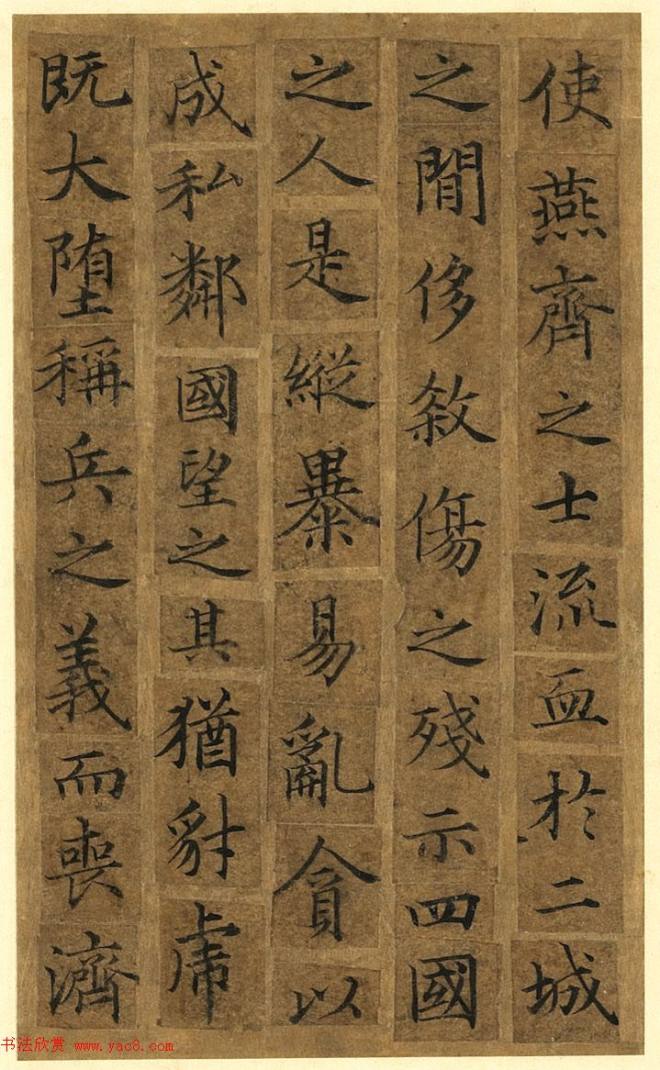 使燕齊之士流血於二城
之間侈殺傷之殘示四國
之人是縱暴易亂貪以
成私鄰國望之其猶豺虎
既大墮稱兵之義而喪濟
书法欣赏 www.yac8.com